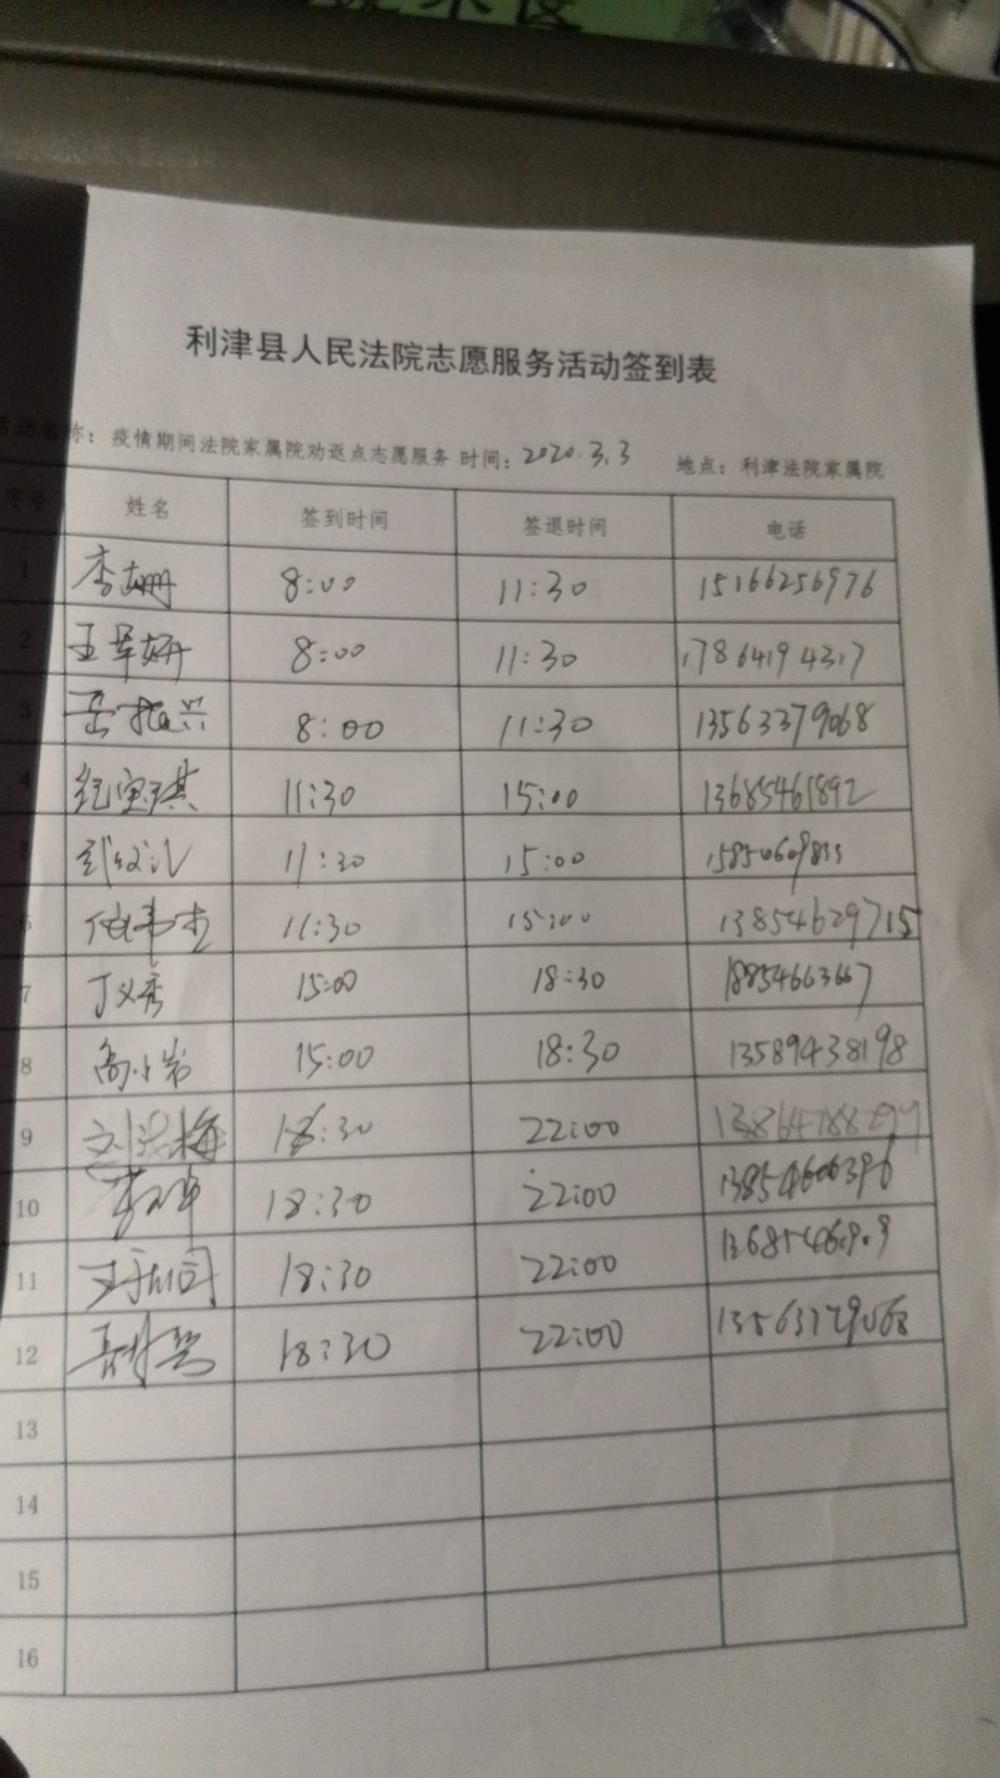 利津县人民法院志愿服务活动签到表
活动名称：疫情期间法院家属院劝返点志愿服务 时间：2020.3.3 地点：利津法院家属院
序号 姓名 签到时间 签退时间 电话
1 李姗 8:00 11:30 15166256976
2 王翠妍 8:00 11:30 17864194317
3 岳振兴 8:00 11:30 13563379068
4 纪宝琪 11:30 15:00 13685461892
5 11:30 15:00
6 11:30 15:00 13854629715
7 丁义秀 15:00 18:30 18854663667
8 高小岩 15:00 18:30 13589438198
9 刘洪梅 18:30 22:00
10 18:30 22:00 13854606396
11 18:30 22:00
12 18:30 22:00
13
14
15
16